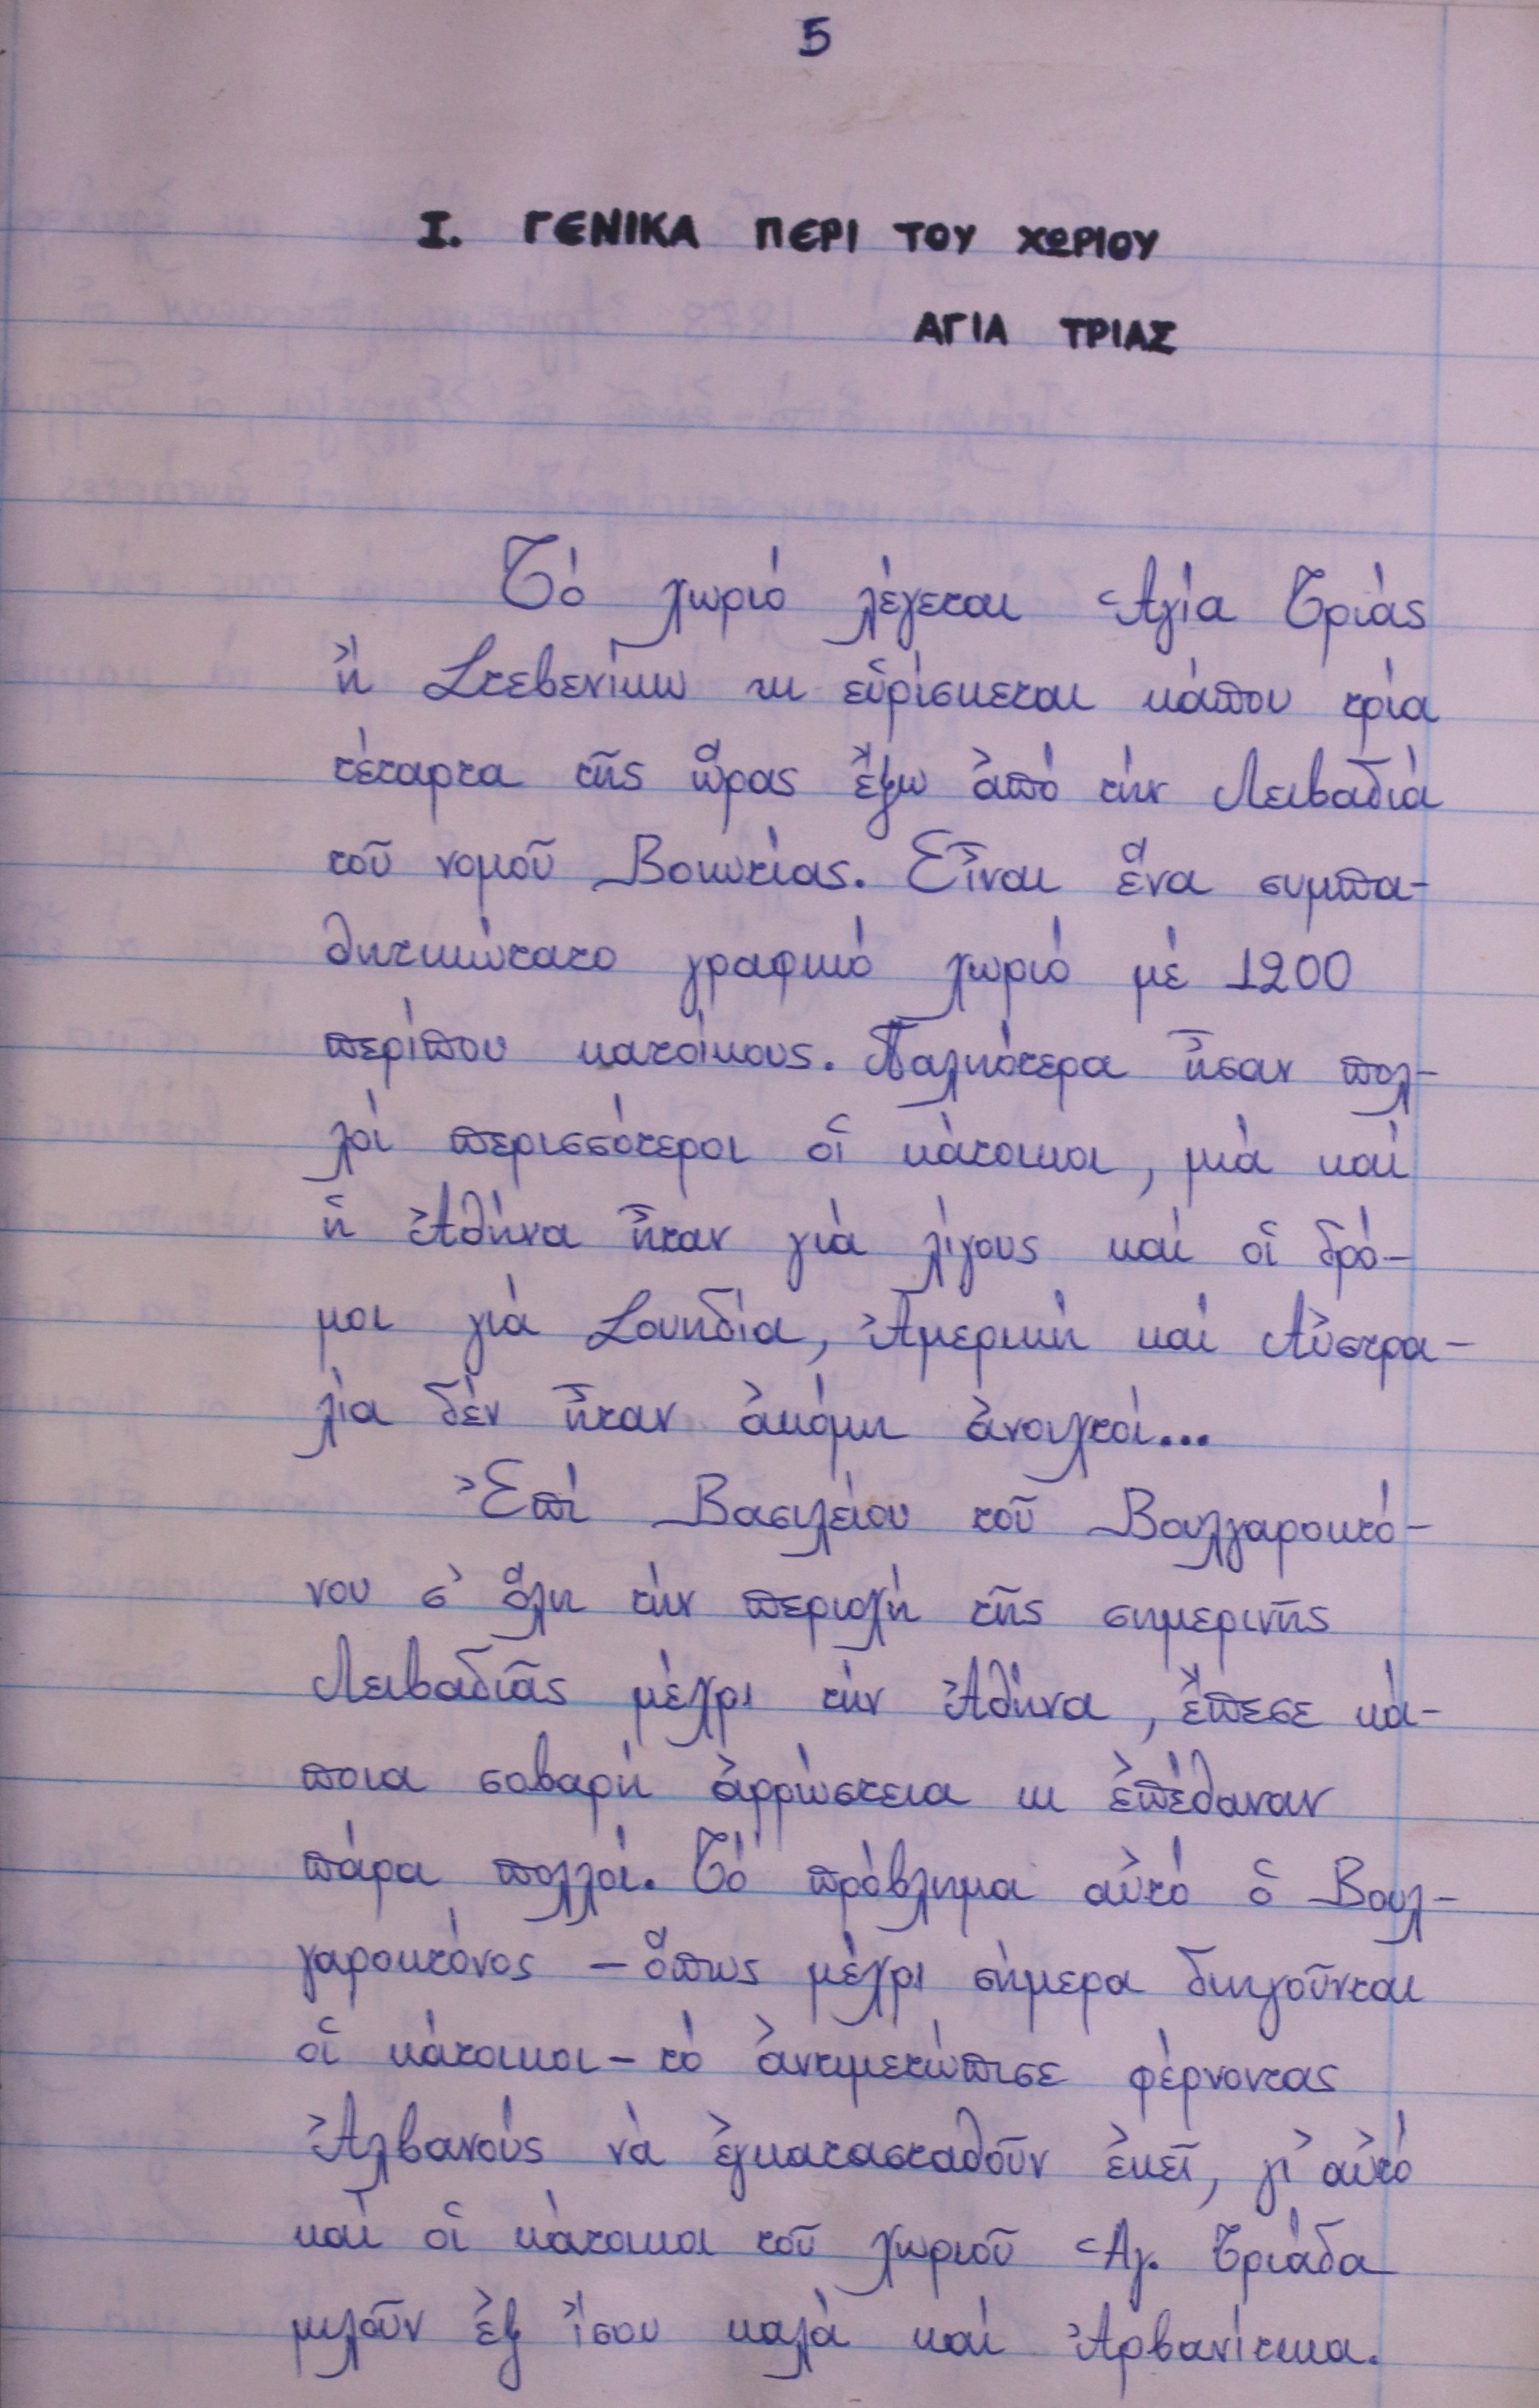 5
I. ΓΕΝΙΚΑ ΠΕΡΙ ΤΟΥ ΧΩΡΙΟΥ
ΑΓΙΑ ΤΡΙΑΣ
Τό χωριό λέγεται Ἁγία Τριάς
ἤ Στεβενίκω κι εὑρίσκεται κάπου τρία
τέταρτα τῆς ὥρας ἔξω ἀπό τήν Λειβαδιά
τοῦ νομοῦ Βοιωτίας. Εἶναι ἕνα συμπα-
θητικώτατο γραφικό χωριό μέ 1200
περίπου κατοίκους. Παλιότερα ἦσαν πολ-
λοί περισσότεροι οἱ κάτοικοι, μιά καί
ἡ Ἀθήνα ἦταν γιά λίγους καί οἱ δρό-
μοι γιά Σουηδία, Ἀμερική καί Αὐστρα-
λία δέν ἦταν ἀκόμη ἀνοιχτοί...
Ἐπί Βασιλείου τοῦ Βουλγαροκτό-
νου σ' ὅλη τήν περιοχή τῆς σημερινῆς
Λειβαδιᾶς μέχρι τήν Ἀθήνα, ἔπεσε κά-
ποια σοβαρή ἀρρώστεια κι ἐπέθαναν
πάρα πολλοί. Τό πρόβλημα αὐτό ὁ Βουλ-
γαροκτόνος - ὅπως μέχρι σήμερα διηγοῦνται
οἱ κάτοικοι - τό ἀντιμετώπισε φέρνοντας
Ἀλβανούς νά ἐγκατασταθοῦν ἐκεῖ, γι' αὐτό
καί οἱ κάτοικοι τοῦ χωριοῦ Ἁγ. Τριάδα
μιλοῦν ἐξ ἴσου καλά καί Ἀρβανίτικα.